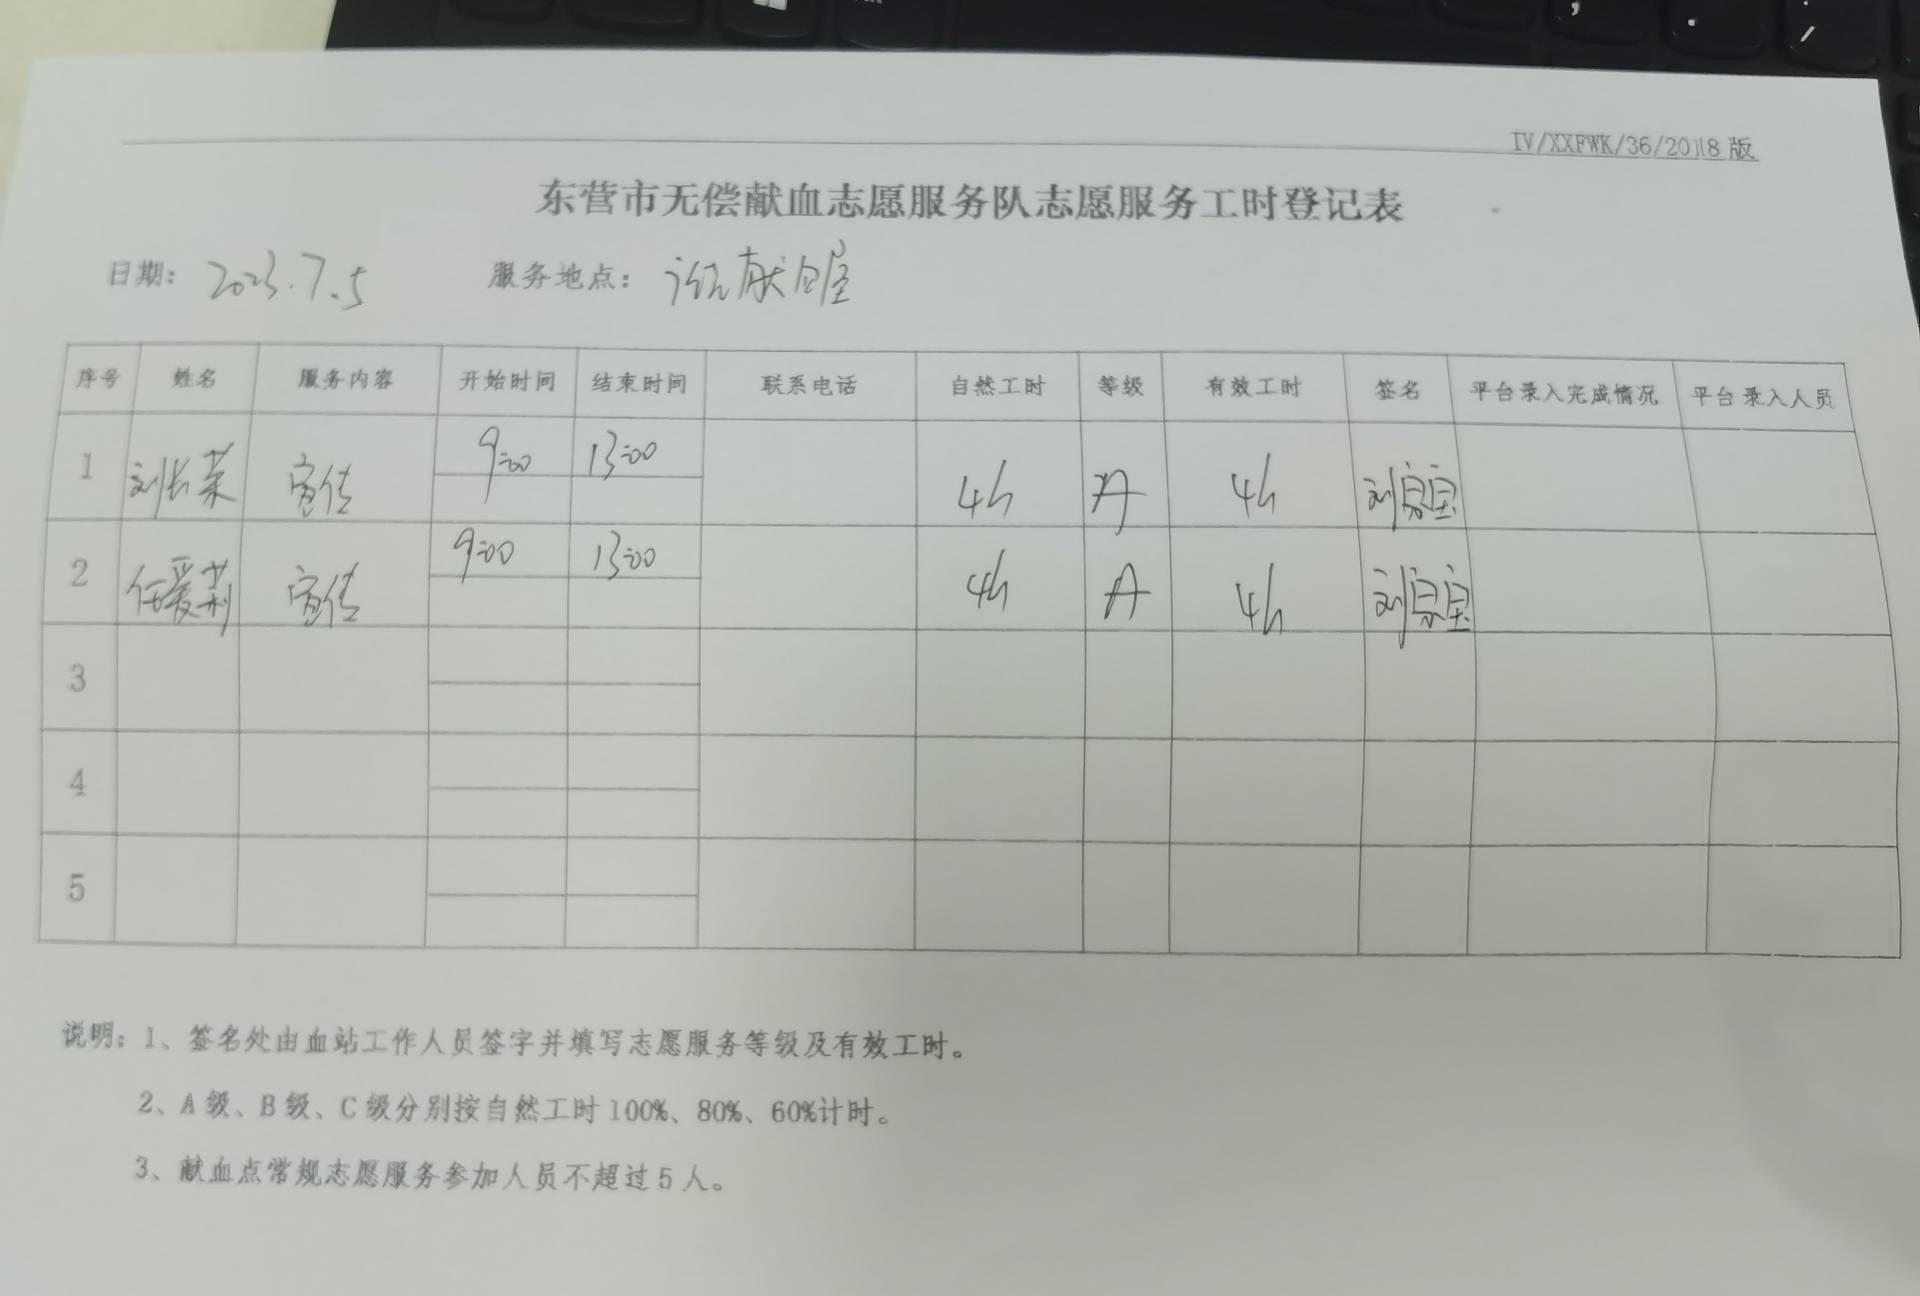 IV/XXFWK/36/2018版
东营市无偿献血志愿服务队志愿服务工时登记表
日期: 2023.7.5 服务地点: 献血屋
序号 姓名 服务内容 开始时间 结束时间 联系电话 自然工时 等级 有效工时 签名 平台录入完成情况 平台录入人员
1 刘长荣 宣传 9:00 13:00 4h A 4h 刘宗宝
2 任爱莉 宣传 9:00 13:00 4h A 4h 刘宗宝
3
4
5
说明: 1、签名处由血站工作人员签字并填写志愿服务等级及有效工时。
2、A级、B级、C级分别按自然工时100%、80%、60%计时。
3、献血点常规志愿服务参加人员不超过5人。